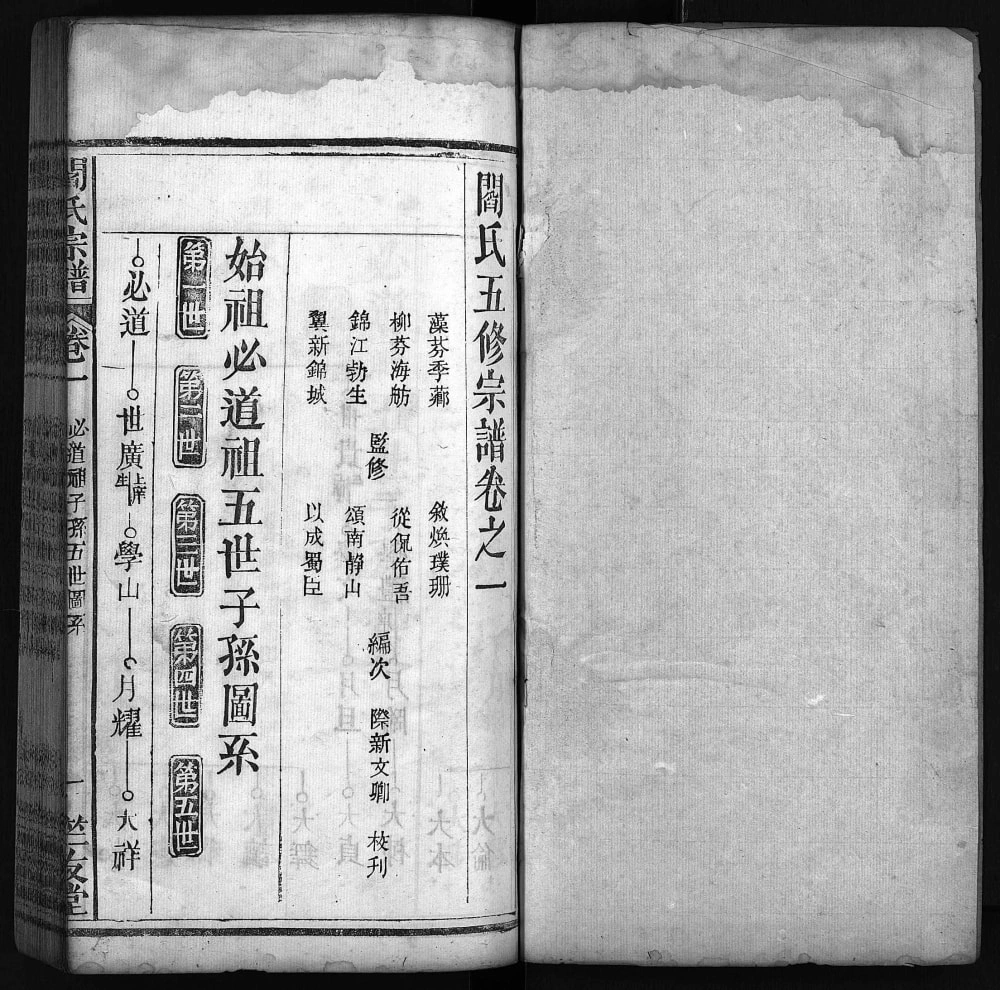 閻氏五修宗譜卷之一
藻芬季薌
柳芬海舫
錦江勃生
翼新錦城
監修
敘煥璞珊
從侃佑吾
頌南靜山
以成蜀臣
編次
際新文卿
校刊
始祖必道祖五世子孫圖系
第一世 第二世 第三世 第四世 第五世
必道 世廣 生上庠 學山 月耀 大祥
閻氏宗譜 卷一 必道祖子孫五世圖系 一 友堂